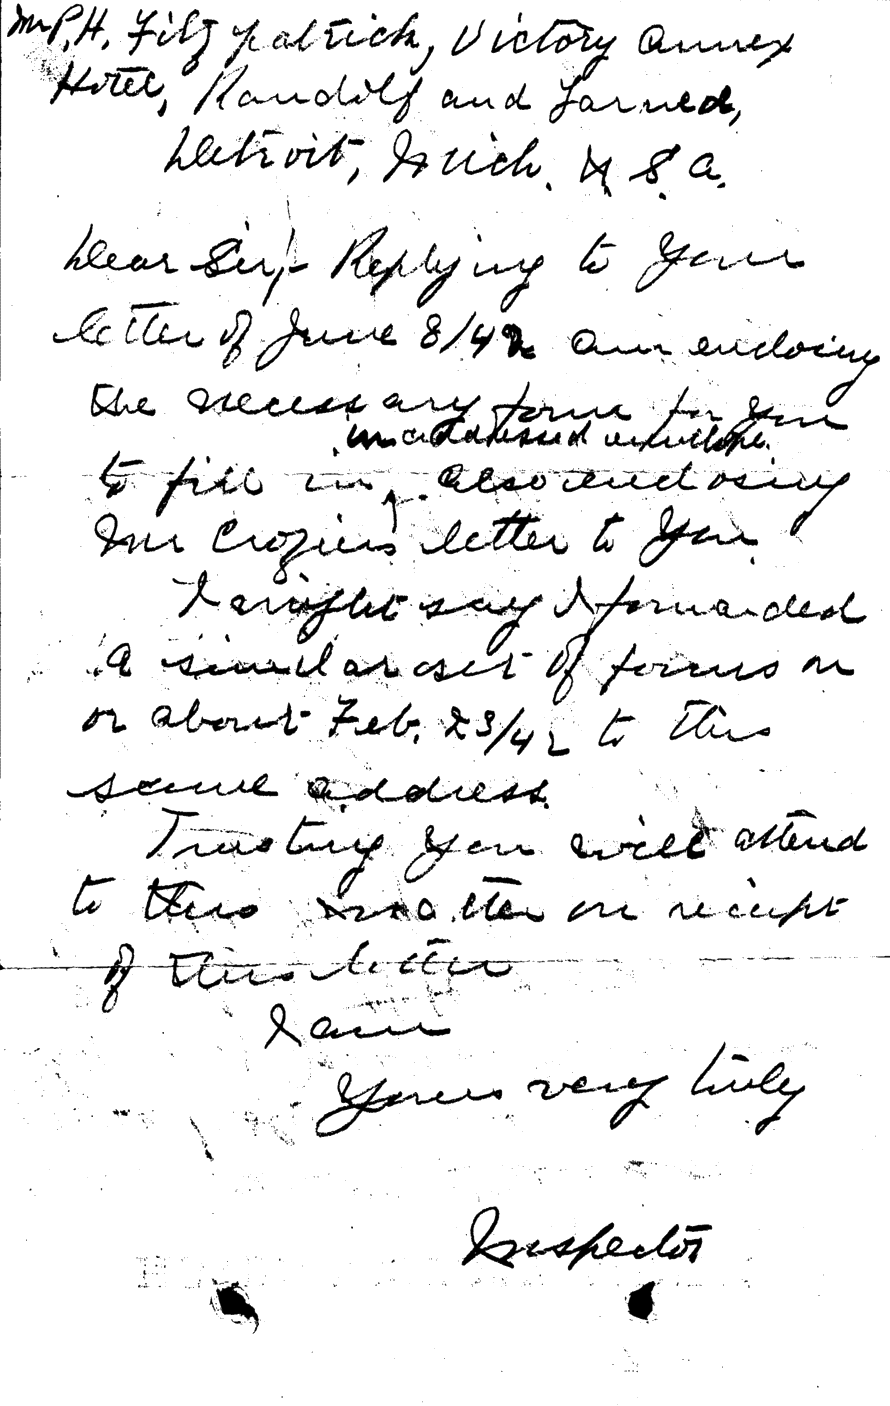 Mr P. H. Fitzpatrick, Victory Annex
Hotel, Randolf and Larned,
Detroit, Mich. U.S.A.
Dear Sir,- Replying to your
letter of June 8/42 am enclosing
the necessary form for you
in addressed envelope.
to fill in, also enclosing
Mr Crozier's letter to you.
I might say I forwarded
a similar set of forms on
or about Feb. 23/42 to this
same address.
Trusting you will attend
to this matter on reciept
of this letter
I am
Yours very truly
Inspector